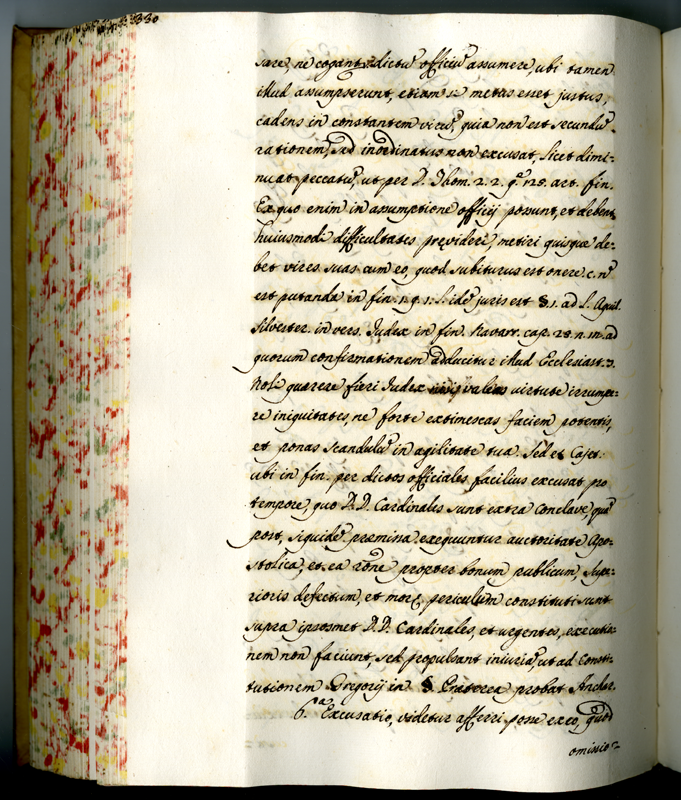 330
sare, ne cogant dictũ officiũ assumere, ubi tamen
illud assumpserunt, etiam si metus esset justus,
cadens in constantem virũ, quia non est secundũ
rationem, sed inordinatus non excusat, licet dimi-
nuat peccatũ, ut per D. Thom. 2. 2. q. 125. art. fin.
Ex quo enim in assumptione officij possunt, et debent
huiusmodi difficultates previderi, metiri quisque de-
bet vires suas cum eo, quod subiturus est onere c. nõ
est putanda in fin. 1. q. 1. l. idẽ juris est § 1. ad l. Aquil.
Silvester. in vers. Judex in fin. Navarr. cap. 25. n. ad
quorum confirmationem adducitur illud Ecclesiast. 7.
Noli quærere fieri Judex nisi valeas virtute irrumpe-
re iniquitates, ne forte extimescas faciem potentis,
et ponas scandulũ in agilitate tua. Sed et Cajet.
ubi in fin. per dictos officiales facilius excusat pro
tempore, quo D.D. Cardinales sunt extra Conclave, quã
post, siquidẽ premissa exequuntur auctoritate Apo-
stolica, et ea rõne propter bonum publicum, Supe-
rioris defectum, et moræ periculum constituti sunt
supra ipsosmet D.D. Cardinales, et urgentes, executio-
nem non faciunt, sed propulsant iniuriã, ut ad Consti-
tutionem Gregorij in § Præterea probat Anchar.
6.ª Excusatio, videtur afferri posse ex eo, quod
omissio-